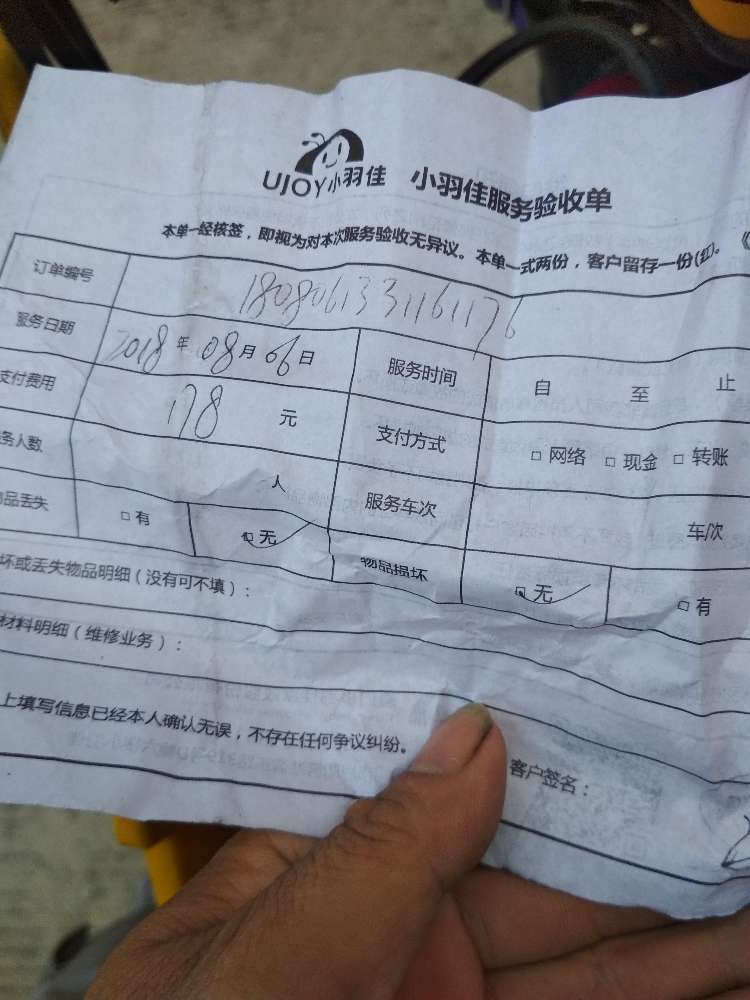 UJOY小羽佳 小羽佳服务验收单
本单一经核签，即视为对本次服务验收无异议。本单一式两份，客户留存一份(红)。《
订单编号 1808061331161176
服务日期 2018年08月06日 服务时间 自 至 止
支付费用 178元 支付方式 □网络 □现金 □转账
务人数 人 服务车次 车/次
品丢失 □有 □无 物品损坏 □无 □有
坏或丢失物品明细（没有可不填）：
材料明细（维修业务）：
上填写信息已经本人确认无误，不存在任何争议纠纷。
客户签名：